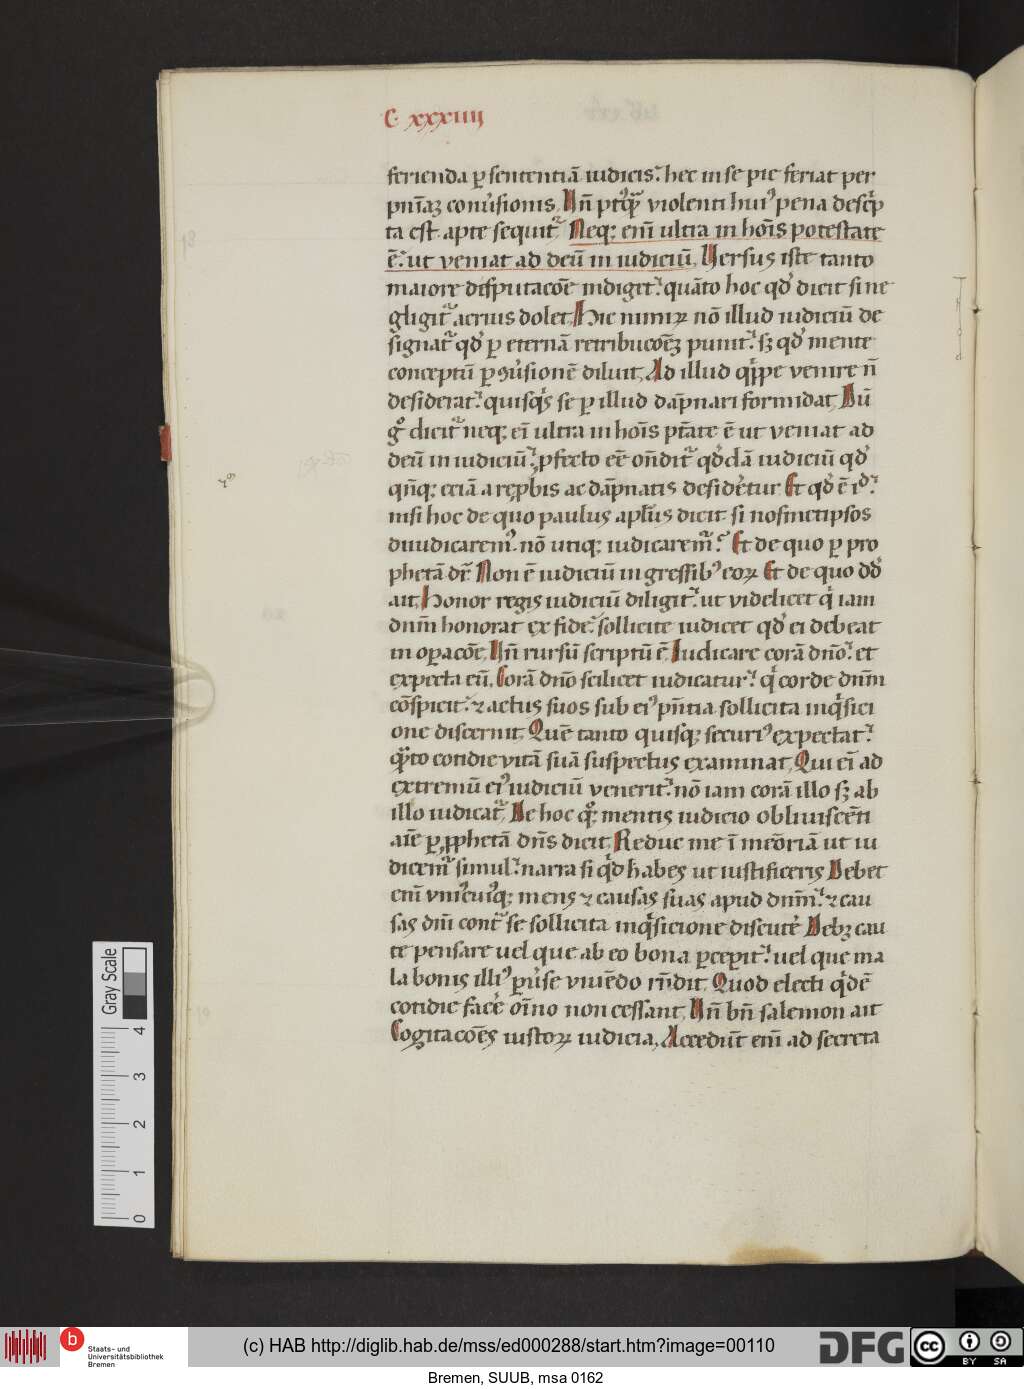 C. xxxiiij
ferienda ꝑ sententiā iudicis? hec in se pie feriat per
pnīaꝫ conūsionis. Un̄ violenti huiꝰ pena descⁱp
ta est. apte sequit᷑ Neqꝫ enī ultra in hoīs potestate
ē? ut veniat ad deū in iudiciū. Uersus iste tanto
maiore disputacōe indiget? quāto hoc qđ dicit si ne
gligit᷑ acrius dolet. Hic nimiꝝ nō illud iudiciū de
signat᷑ qđ ꝑ eternā retribucōeꝫ punit? sꝫ qđ mente
conceptū ꝑ ꝯūsionē diluit. Ad illud qⁱppe venire n̄
desiderat? quisqⁱs se ꝑ illud dāpnari formidat. Dū
gͦ dicit᷑ neqꝫ eī ultra in hoīs ptāte ē ut veniat ad
deū in iudiciū? ꝓfecto eē on̄dit᷑ qđdā iudiciū qđ
qn̄qꝫ eciā a reꝓbis ac dāpnatis desidēt᷑ur. Et qđ ē id?
nisi hoc de quo paulus apl̄us dicit. si nosmetipsos
diiudicarem᷑. nō utiqꝫ iudicarem᷑? Et de quo ꝑ pro
phetā dr̄ Non ē iudiciū ingressibꝰ eoꝝ Et de quo dđ
ait. Honor regis iudiciū diligit? ut videlicet qⁱ iam
dnm̄ honorat ex fide? sollicite iudicet qđ ei debeat
in oꝑacōe. Un̄ rursū scriptū ē. Iudicare corā dn̄o? et
expecta eū. Corā dn̄o scilicet iudicatur? qⁱ corde dnm̄
cōspicit? ⁊ actus suos sub eiꝰ pn̄tia sollicita inqⁱsici
one discernit. Quē tanto quisqꝫ securiꝰ expectat?
qᵃ̄to cotidie vitā suā suspectus examinat. Qui eī ad
extremū eiꝰ iudiciū venerit? nō iam corā illo sꝫ ab
illo iudicat᷑. De hoc qͦꝫ mentis iudicio obliuiscēti
aīe ꝑ ꝓphetā dn̄s dicit. Reduc me ī meōriā ut iu
dicem᷑ simul? narra si qⁱd habes ut iustificeris Debet
enī vniꝰcuiꝰqꝫ mens ⁊ causas suas apud dnm̄? ⁊ cau
sas dnī cont᷑ se sollicita inqⁱsicione discutē Debꝫ cau
te pensare uel que ab eo bona ꝑcepit? uel que ma
la bonis illiꝰ ꝑūse viuēdo rn̄dit. Quod electi qⁱdē
cotidie facē oīno non cessant. Un̄ bn̄ salemon ait
Cogitacōes iustoꝝ iudicia. Accedūt enī ad secreta
Gray Scale
4
3
2
1
0
b Staats- und
Universitätsbibliothek
Bremen
(c) HAB http://diglib.hab.de/mss/ed000288/start.htm?image=00110
DFG
cc BY SA
Bremen, SUUB, msa 0162